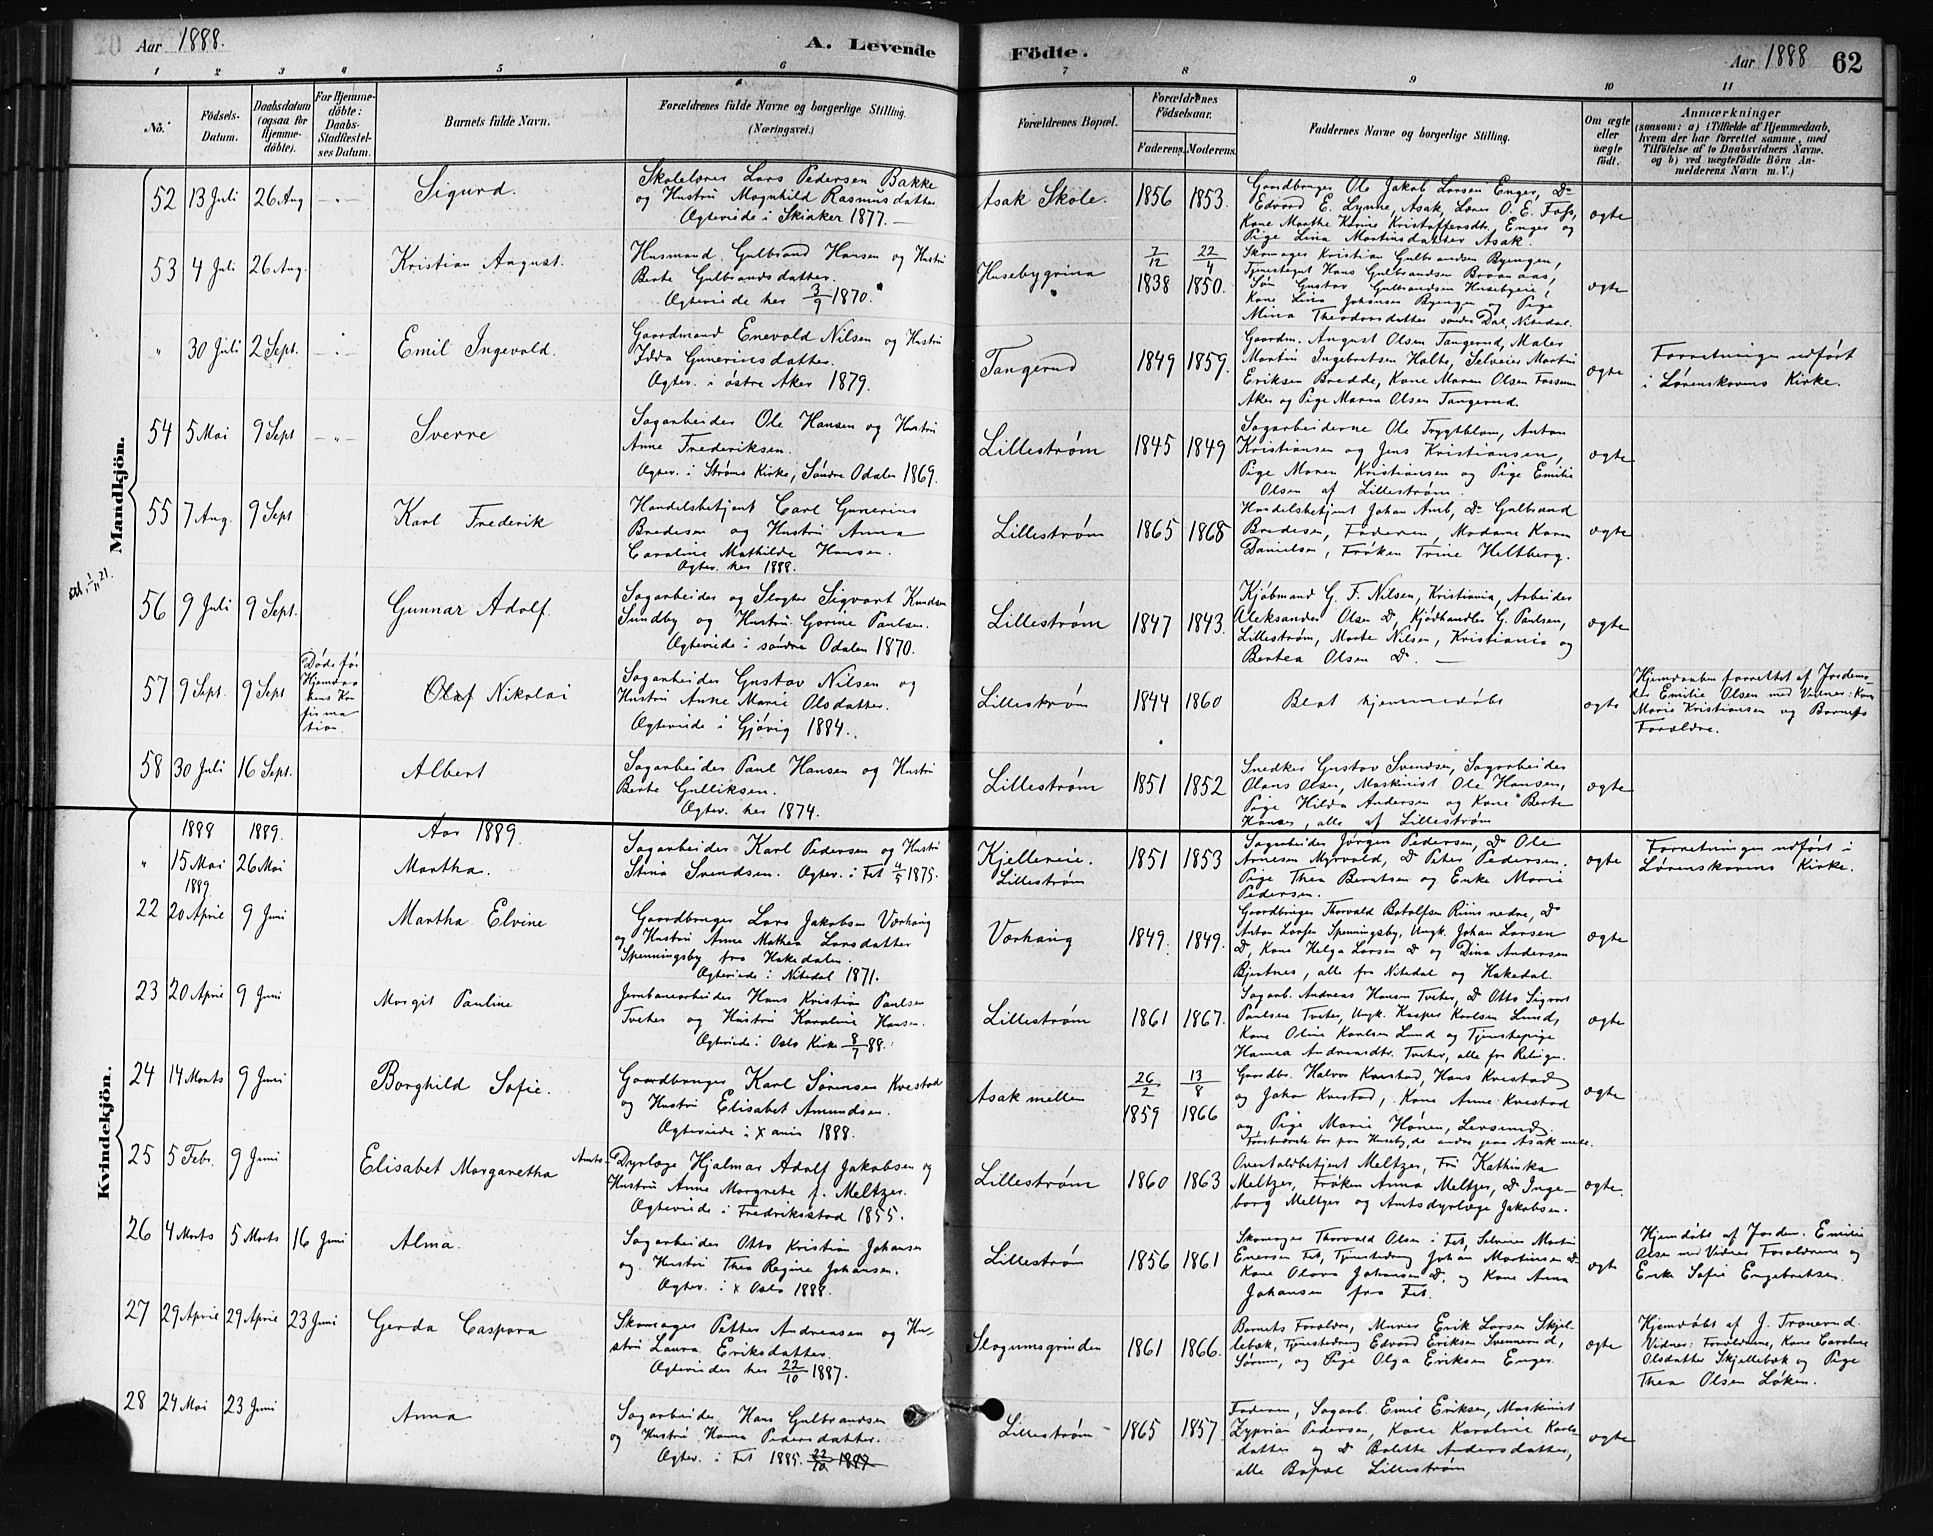 Aar 1888.
A. Levende
Födte.
Aar 1888
62
1 2 3 4 5 6 7 8 9 10 11
No.
Födsels-
Datum.
Daabsdatum
(ogsaa for
Hjemme-
döbte).
For Hjemme-
döbte:
Daabs-
Stadfæstel-
ses Datum.
Barnets fulde Navn.
Forældrenes fulde Navne og borgerlige Stilling.
(Næringsvei.)
Forældrenes Bopæl.
Forældrenes
Födselsaar.
Faderens. Moderens.
Faddernes Navne og borgerlige Stilling.
Om ægte
eller
uægte
födt.
Anmærkninger
(saasom: a) i Tilfælde af Hjemmedaab,
hvem der har forrettet samme, med
Tilföielse af to Daabsvidners Navne.
og b) ved uægtefödte Börn An-
melderens Navn m. V.)
Mandkjön.
Kvindekjön.
52 13 Juli 26 Aug — " — Sigurd.
Skolelærer Lars Pedersen Bakke
og Hustru Magnhild Rasmusdatter
Ægteviede i Skiaker 1877. —
Asak Skole. 1856 1853.
Gaardbruger Ole Jakob Larsen Enger, Do
Edvard E. Lynne, Asak, Lærer O. E. Foss,
Kone Marthe Karine Kristoffersdtr. Enger og
Pige Lina Martinsdatter Asak.
ægte
53 4 Juli 26 Aug. Kristian August.
Husmand Gulbrand Hansen og Hustru
Berte Gulbrandsdatter.
Ægteviede her 3/9 1870.
Husebygrina 7/12 1838 22/4 1850.
Skomager Kristian Gulbrandsen Byengen,
Tjenestegut Hans Gulbrandsen Braanaas,
Søn Gustav Gulbrandsen Husebyeie,
Kone Lina Johansen Byengen og Pige
Mina Theodorsdatter søndre Dal, Nitedal.
ægte
" 30 Juli 2 Sept. — " — Emil Ingevald.
Gaardmand Enevold Nilsen og Hustru
Idda Gunerinesdatter.
Ægtev. i østre Aker 1879.
Tangerud 1849 1859.
Gaardm. August Olsen Tangerud, Maler
Martin Ingebretsen Holte, Selveier Martin
Eriksen Bredde, Kone Maren Olsen Fossum
Aker og Pige Maren Olsen Tangerud.
ægte
Forretningen udført
i Lørenskovens Kirke.
54 5 Mai 9 Sept — " — Sverre
Sagarbeider Ole Hansen og Hustru
Anne Frederiksen.
Ægtev. i Strøms Kirke, Søndre Odalen 1869.
Lillestrøm 1845 1849
Sagarbeiderne Ole Trygtblom, Anton
Kristiansen og Jens Kristiansen,
Pige Maren Kristiansen og Pige Emilie
Olsen af Lillestrøm.
ægte
55 7 Aug. 9 Sept Karl Frederik
Handelsbetjent Carl Gunerius
Bredesen og Hustru Anna
Caroline Mathilde Hansen.
Ægtev. her 1888.
Lillestrøm 1865 1868
Handelsbetjent Johan Amb, Do Gulbrand
Bredesen, Faderen, Madame Karen
Danielsen, Frøken Trine Heltberg.
ægte
56 9 Juli 9 Sept. Gunnar Adolf.
Sagarbeider og Slagter Sigvart Knudsen
Sundby og Hustru Gorine Paulsen.
Ægteviede i søndre Odalen 1870.
Lillestrøm 1847 1843.
Kjøbmand G. F. Nilsen, Kristiania, Arbeider
Aleksander Olsen Do, Kjødhandler G. Paulsen,
Lillestrøm, Marte Nilsen, Kristiania og
Bertea Olsen Do. —
ægte
57 9 Sept. 9 Sept
Døde før
Hjemdaa-
bens Kon
firma
tion.
Olaf Nikolai
Sagarbeider Gustav Nilsen og
Hustru Anne Marie Olsdatter.
Ægteviede i Gjøvig 1884.
Lillestrøm 1844 1860
Blot hjemmedøbt
ægte
Hjemdaaben forrettet af Jordemo-
der Emilie Olsen med Vidner: Kone
Marie Kristiansen og Barnets
Forældre.
58 30 Juli 16 Sept. Albert
Sagarbeider Paul Hansen og Hustru
Berte Gulliksen.
Ægtev. her 1874.
Lillestrøm 1851 1852
Snedker Gustav Svendsen, Sagarbeider
Olaus Olsen, Maskinist Ole Hansen,
Pige Hilda Andersen og Kone Berte
Hansen, alle af Lillestrøm
ægte
1888 1889. Aar 1889.
" 15 Mai 26 Mai Martha.
Sagarbeider Karl Pedersen og Hustru
Stina Svendsen. Ægtev. i Fet 4/5 1875.
Kjellereie.
Lillestrøm 1851 1853
Sagarbeider Jørgen Pedersen, Do Ole
Arnesen Myrvold, Do Peter Pedersen.
Pige Thea Berntsen og Enke Marie
Pedersen.
ægte
Forretningen udført i
Lørenskovens Kirke.
1889.
22 20 April 9 Juni Martha Elvine
Gaardbruger Lars Jakobsen Værhaug
og Hustru Anne Mathea Larsdatter
Spenningsby fra Hakedalen.
Ægteviede i Nitedal 1871.
Værhaug 1849. 1849.
Gaardbruger Thorvald Botolfsen Riins nedre, Do
Anton Larsen Spenningsby, Ungk. Johan Larsen
Do, Kone Helga Larsen Do og Dina Andersen
Bjertnes, alle fra Nitedal og Hakedal.
ægte
23 20 April 9 Juni Margit Pauline
Jernbanearbeider Hans Kristian Paulsen
Tveter og Hustru Karoline Hansen.
Ægteviede i Oslo Kirke 8/7 88.
Lillestrøm 1861 1867.
Sagarb. Andreas Hansen Tveter, Do Otto Sigvart
Paulsen Tveter, Ungk. Kasper Karlsen Lund,
Kone Oline Karlsen Lund og Tjenestepige
Hanna Andreasdtr. Tveter, alle fra Rælingen.
ægte
24 14 Marts 9 Juni Borghild Sofie.
Gaardbruger Karl Sørensen Kvestad
og Hustru Elisabet Amundsen.
Ægteviede i Xania 1888.
Asak mellem 26/2 1859 13/8 1866
Gaardbr. Halvor Kvestad, Hans Kvestad
og Johan Kvestad, Kone Anne Kvestad
og Pige Marie Hønen, Lersund.
ægte
25 5 Febr. 9 Juni Elisabet Margaretha
Amts-Dyrlæge Hjalmar Adolf Jakobsen og
Hustru Anne Margrete f. Meltzer.
Ægteviede i Fredriksstad 1855.
Lillestrøm 1860 1863
Overtoldbetjent Meltzer, Fru Kathinka
Meltzer, Frøken Anna Meltzer, Do Inge-
borg Meltzer og Amtsdyrlæge Jakobsen.
ægte.
26 4 Marts 5 Marts 16 Juni Alma.
Sagarbeider Otto Kristian Johansen
og Hustru Thea Regine Johansen.
Ægtev. i X Oslo 1888.
Lillestrøm 1856 1861
Skomager Thorvald Olsen i Fet, Selveier Martin
Enersen Fet, Tjenestedreng Johan Martinsen Do
Kone Olava Johansen Do, og Kone Anna
Johansen fra Fet.
ægt
Hjemdøbt af Jordem. Emilie
Olsen med Vidner Forældrene og
Enke Sofie Engebretsen.
27 29 April 29 April 23 Juni Gerda Caspara
Skomager Petter Andreasen og Hu-
stru Laura Eriksdatter.
Ægteviedes her 22/10 1887.
Slogumsgrinden 1861 1866.
Barnets Forældre, Murer Erik Larsen Skjel-
lebæk, Tjenestedreng Edvard Eriksen Svennerud,
Sørum, og Pige Olga Eriksen Enger.
ægte
Hjemdøbt af J. Tronerud.
Vidner: Forældrene, Kone Caroline
Olsdatter Skjellebæk og Pige
Thea Olsen Løken.
28 24 Mai 23 Juni Anna
Sagarbeider Hans Gulbrandsen
og Hustru Hanna Pedersdatter.
Ægtev. i Fet 1885. 22/10 1887
Lillestrøm 1865 1857
Faderen, Sagarb. Emil Eriksen, Maskinist
Zyprian Pedersen, Kone Karoline Karls-
datter og Do Bolette Andersdatter,
alle Bopæl Lillestrøm
ægte